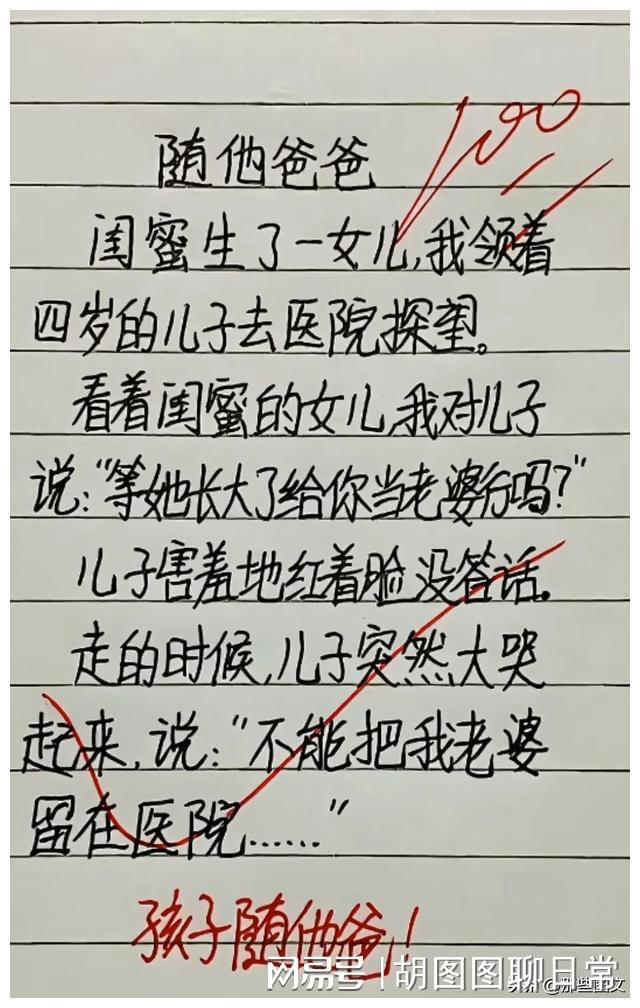 100
随他爸爸
闺蜜生了一女儿,我领着
四岁的儿子去医院探望。
看着闺蜜的女儿,我对儿子
说:“等她长大了给你当老婆行吗?”
儿子害羞地红着脸没答话.
走的时候,儿子突然大哭
起来,说:“不能把我老婆
留在医院......”
孩子随他爸!
网易号 | 胡图图聊日常
头条 @那些图文